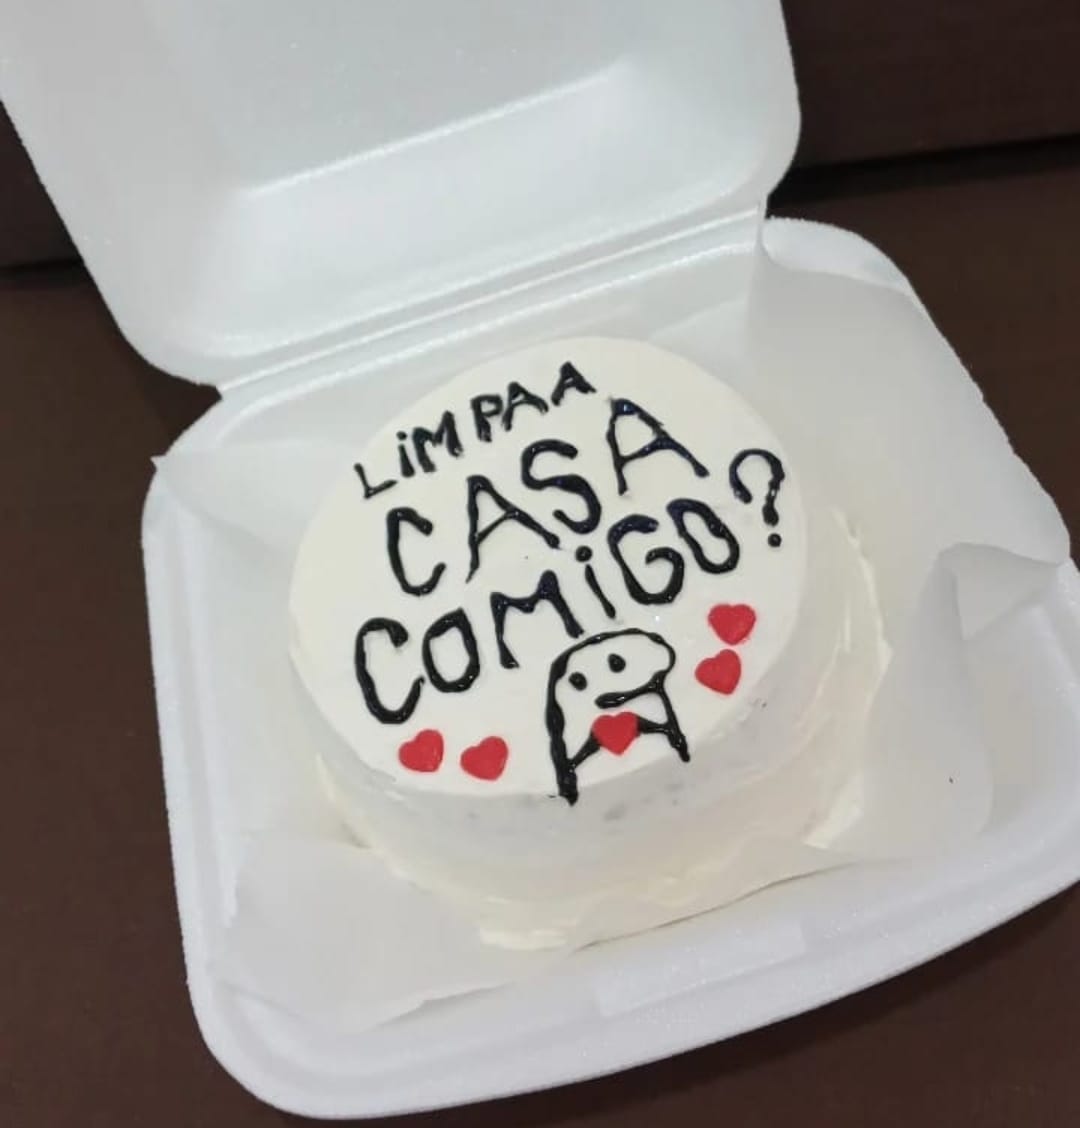 LiMPA A
CASA
COMiGO?